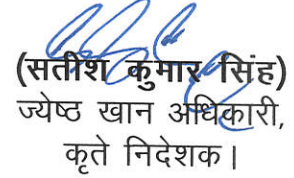 (सतीश कुमार सिंह)
ज्येष्ठ खान अधिकारी,
कृते निदेशक।